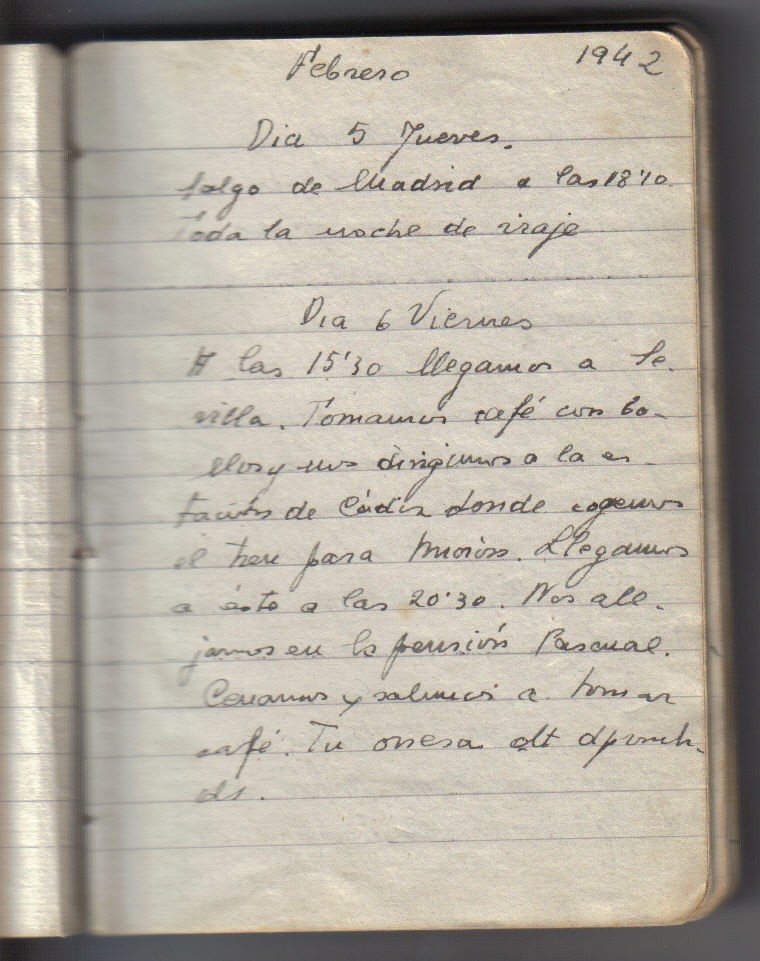 Febrero 1942
Dia 5 Jueves.
Salgo de Madrid a las 18'10.
Toda la noche de viaje
Dia 6 Viernes
A las 15'30 llegamos a Se-
villa. Tomamos café con bo-
llos y nos dirigimos a la es-
tación de Cádiz donde cogemos
el tren para . Llegamos
a ésto a las 20'30. Nos alo-
jamos en la pensión Pascual.
Cenamos y salimos a tomar
café. Tu